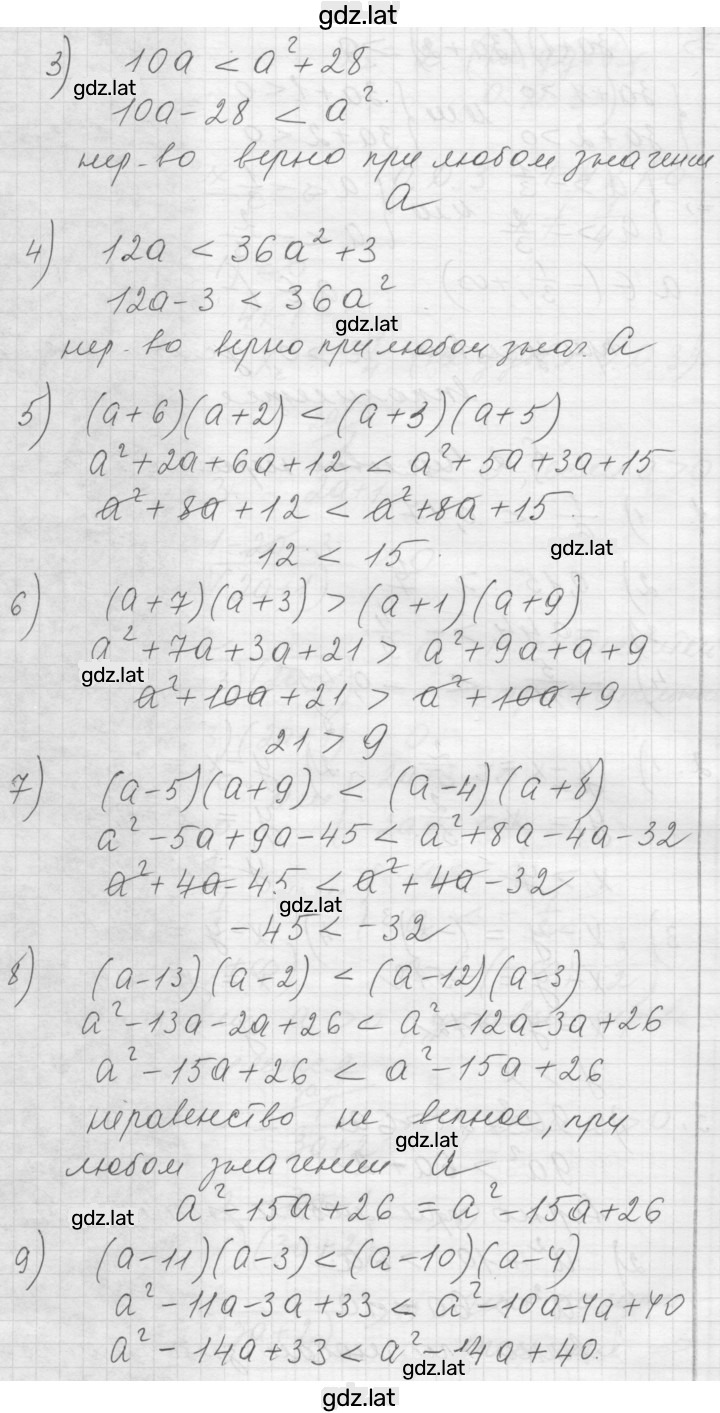 gdz.lat
3) 10a < a² + 28
gdz.lat
10a - 28 < a²
нер-во верно при любом значении
a
4) 12a < 36a² + 3
12a - 3 < 36a²
gdz.lat
нер-во верно при любом знач. a
5) (a+6)(a+2) < (a+3)(a+5)
a² + 2a + 6a + 12 < a² + 5a + 3a + 15
a² + 8a + 12 < a² + 8a + 15
12 < 15
gdz.lat
6) (a+7)(a+3) > (a+1)(a+9)
a² + 7a + 3a + 21 > a² + 9a + a + 9
gdz.lat
a² + 10a + 21 > a² + 10a + 9
21 > 9
7) (a-5)(a+9) < (a-4)(a+8)
a² - 5a + 9a - 45 < a² + 8a - 4a - 32
a² + 4a - 45 < a² + 4a - 32
gdz.lat
-45 < -32
8) (a-13)(a-2) < (a-12)(a-3)
a² - 13a - 2a + 26 < a² - 12a - 3a + 26
a² - 15a + 26 < a² - 15a + 26
неравенство не верное, при
gdz.lat
любом значении a
a² - 15a + 26 = a² - 15a + 26
gdz.lat
9) (a-11)(a-3) < (a-10)(a-4)
a² - 11a - 3a + 33 < a² - 10a - 4a + 40
a² - 14a + 33 < a² - 14a + 40.
gdz.lat
gdz.lat